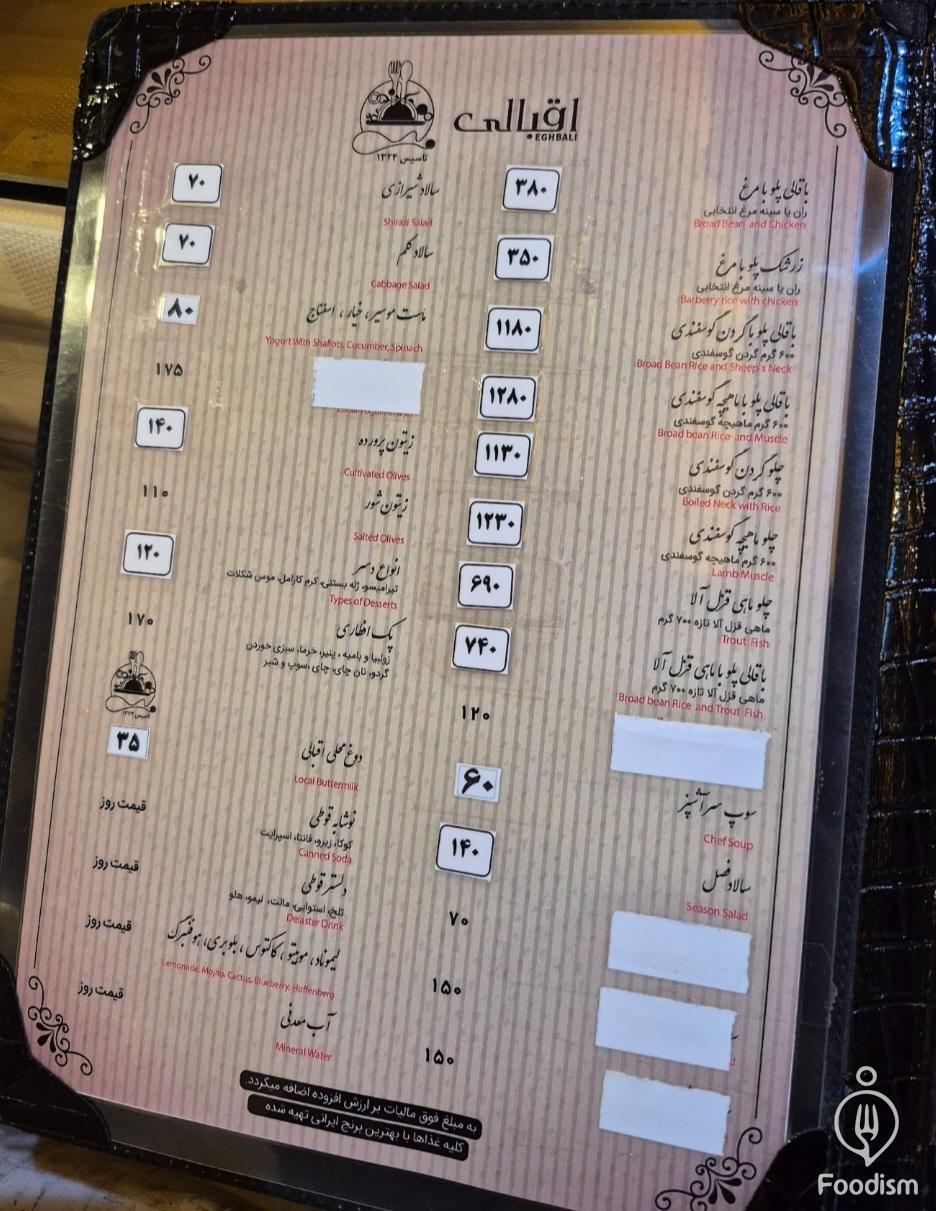 اقبالی
EGHBALI
تاسیس ۱۳۲۴
باقالی پلو با مرغ
۳۸۰
ران یا سینه مرغ انتخابی
Broad Bean and Chicken
زرشک پلو با مرغ
۳۵۰
ران یا سینه مرغ انتخابی
Barberry rice with chicken
باقالی پلو با گردن گوسفندی
۱۱۸۰
۶۰۰ گرم گردن گوسفندی
Broad Bean Rice and Sheep's Neck
باقالی پلو با ماهیچه گوسفندی
۱۲۸۰
۶۰۰ گرم ماهیچه گوسفندی
Broad bean Rice and Muscle
چلو گردن گوسفندی
۱۱۳۰
۶۰۰ گرم گردن گوسفندی
Boiled Neck with Rice
چلو ماهیچه گوسفندی
۱۲۳۰
۶۰۰ گرم ماهیچه گوسفندی
Lamb Muscle
چلو ماهی قزل آلا
۶۹۰
ماهی قزل آلا تازه ۷۰۰ گرم
Trout Fish
باقالی پلو با ماهی قزل آلا
۷۴۰
ماهی قزل آلا تازه ۷۰۰ گرم
Broad bean Rice and Trout Fish
۱۲۰
سوپ سرآشپز
۶۰
Chef Soup
سالاد فصل
۱۴۰
Season Salad
۷۰
۱۵۰
۱۵۰
سالاد شیرازی
۷۰
Shirazi Salad
سالاد کلم
۷۰
Cabbage Salad
ماست موسیر، خیار، اسفناج
۸۰
Yogurt With Shallots, Cucumber, Spinach
۱۷۵
زیتون پرورده
۱۴۰
Cultivated Olives
زیتون شور
۱۱۰
Salted Olives
انواع دسر
۱۲۰
تیرامیسو، ژله بستنی، کرم کارامل، موس شکلات
Types of Desserts
پک افطاری
۱۷۰
زولبیا و بامیه ، پنیر، خرما، سبزی خوردن
گردو، نان چای، چای ،سوپ و شیر
تاسیس ۱۳۲۴
دوغ محلی اقبالی
۳۵
Local Buttermilk
نوشابه قوطی
قیمت روز
کوکا، زیرو، فانتا، اسپرایت
Canned Soda
دلستر قوطی
قیمت روز
تلخ، استوایی، مالت، لیمو، هلو
Delaster Drink
لیموناد، موهیتو، کاکتوس، بلوبری، هوفنبرگ
قیمت روز
Lemonade, Mojito, Cactus, Blueberry, Hoffenberg
آب معدنی
قیمت روز
Mineral Water
به مبلغ فوق مالیات بر ارزش افزوده اضافه میگردد.
کلیه غذاها با بهترین برنج ایرانی تهیه شده
Foodism